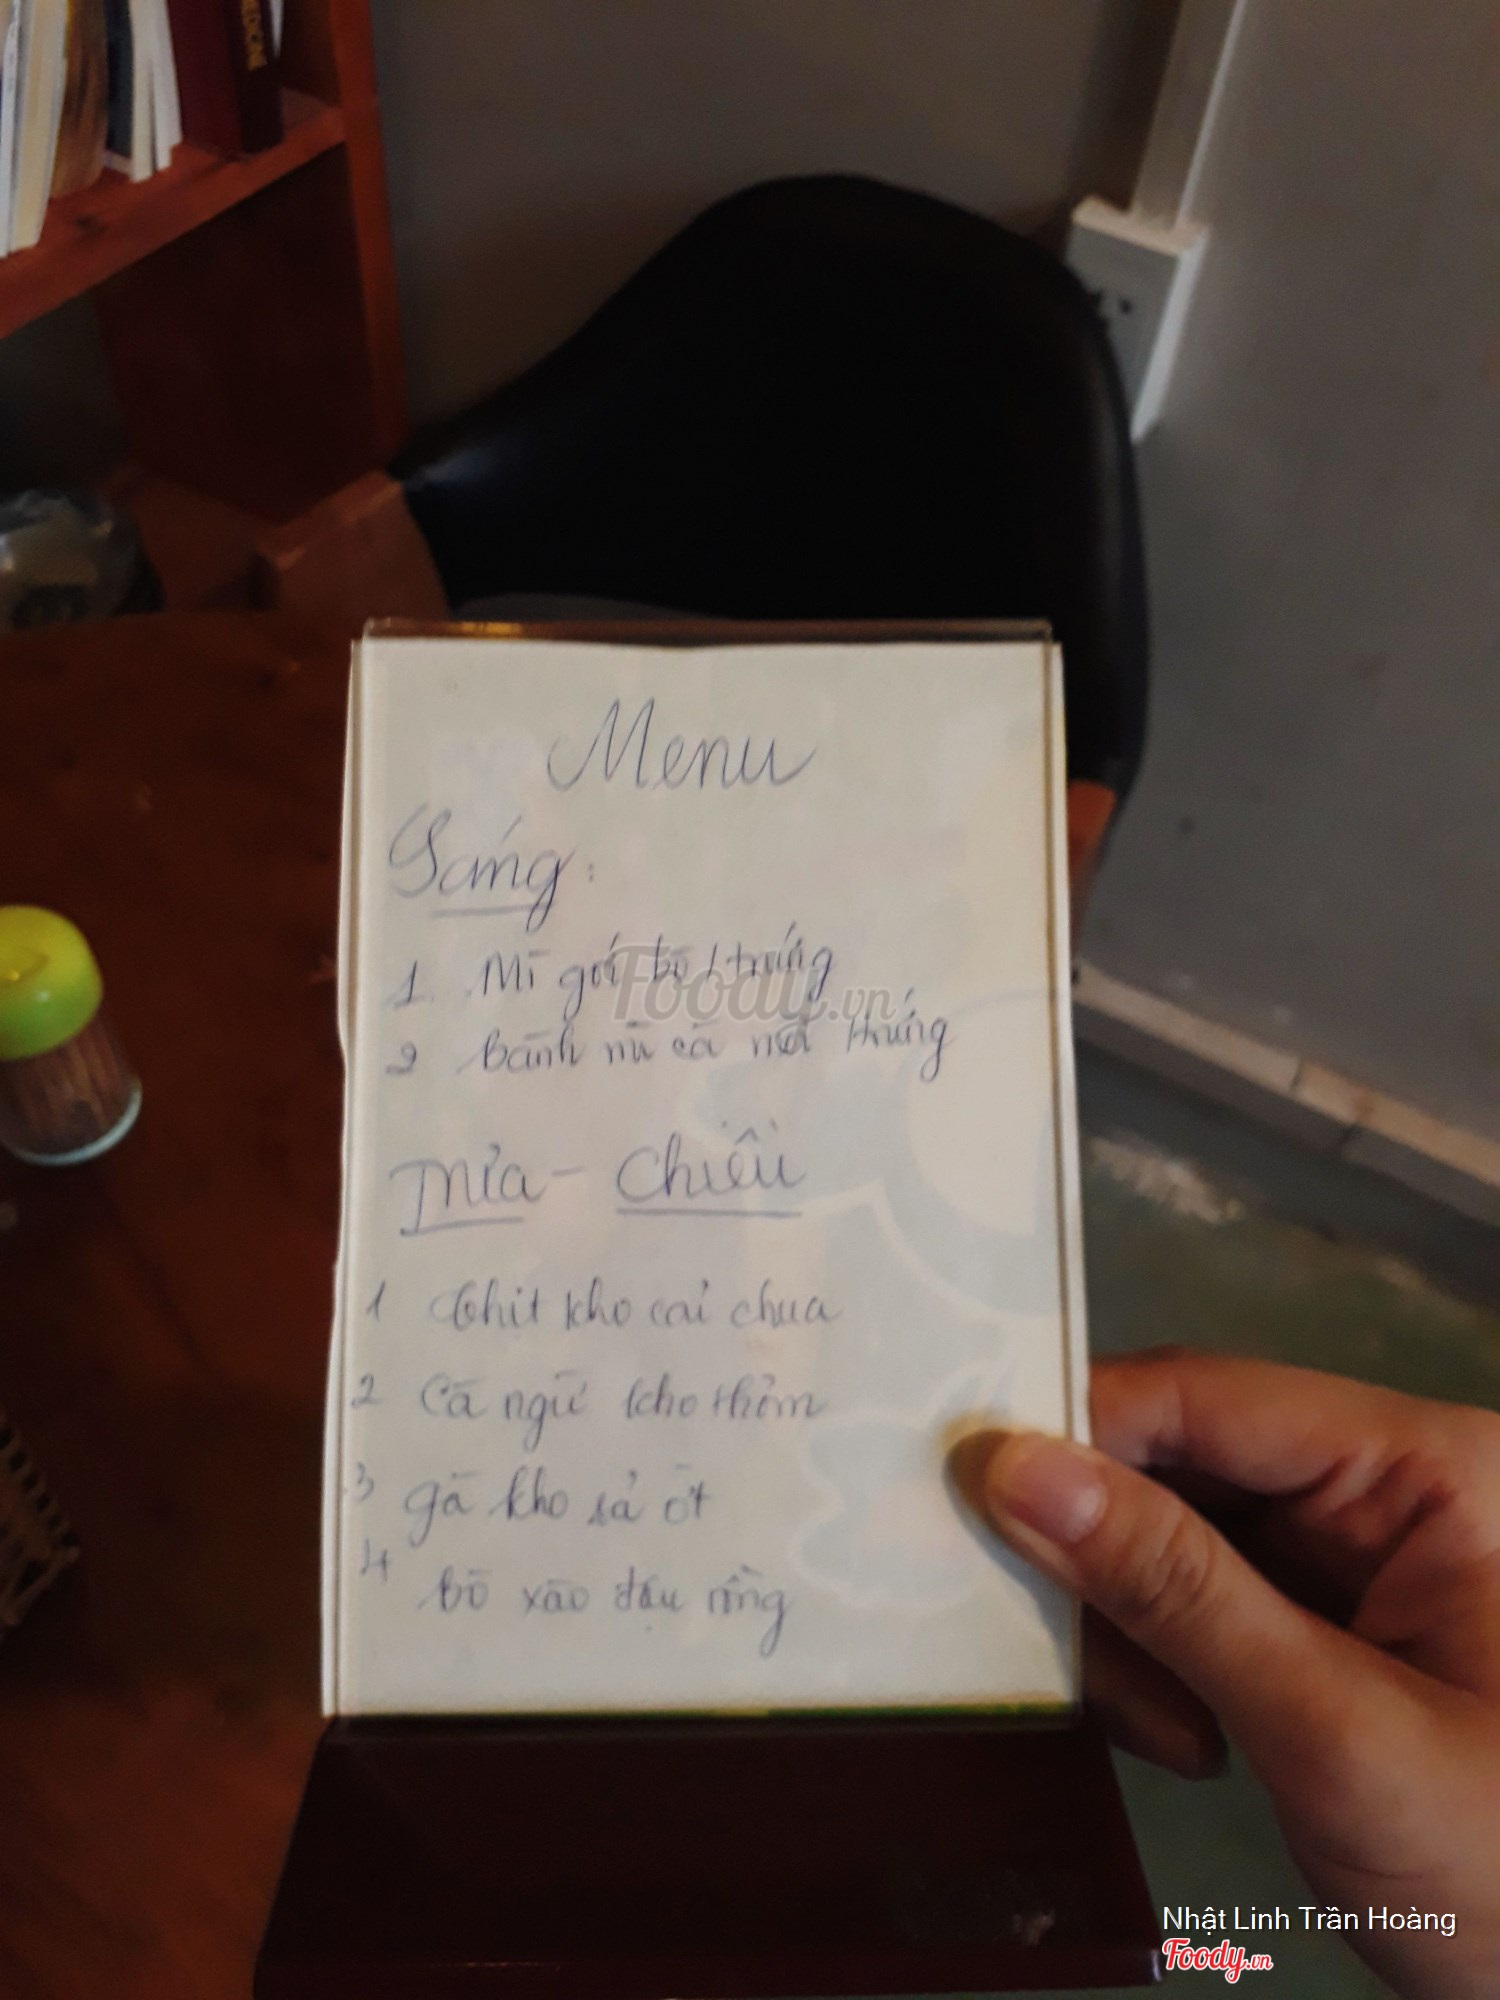 MEDICINE
Menu
Sáng:
1. Mì gói bò / trứng
2 Bánh mì cá mòi trứng
Trưa - Chiều
1 Thịt kho cải chua
2 Cá ngừ kho thơm
3 gà kho sả ớt
4 bò xào đậu rồng
Foody.vn
Nhật Linh Trần Hoàng
Foody.vn